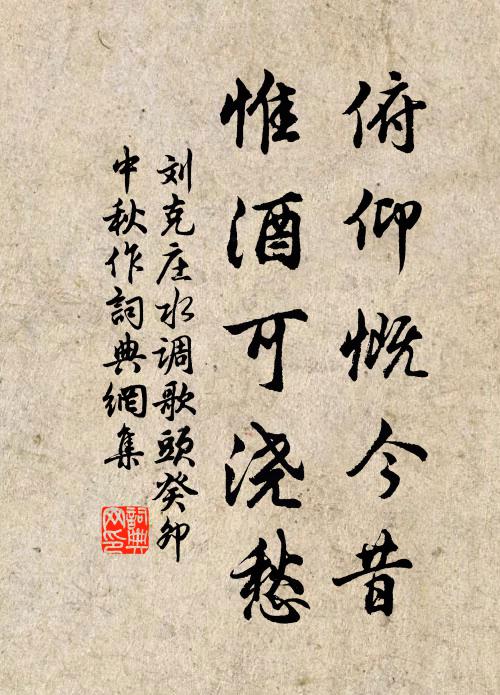 俯仰慨今昔
惟酒可浇愁
刘克庄水调歌頭癸卯
中秋作詞典網集
詞典
网印